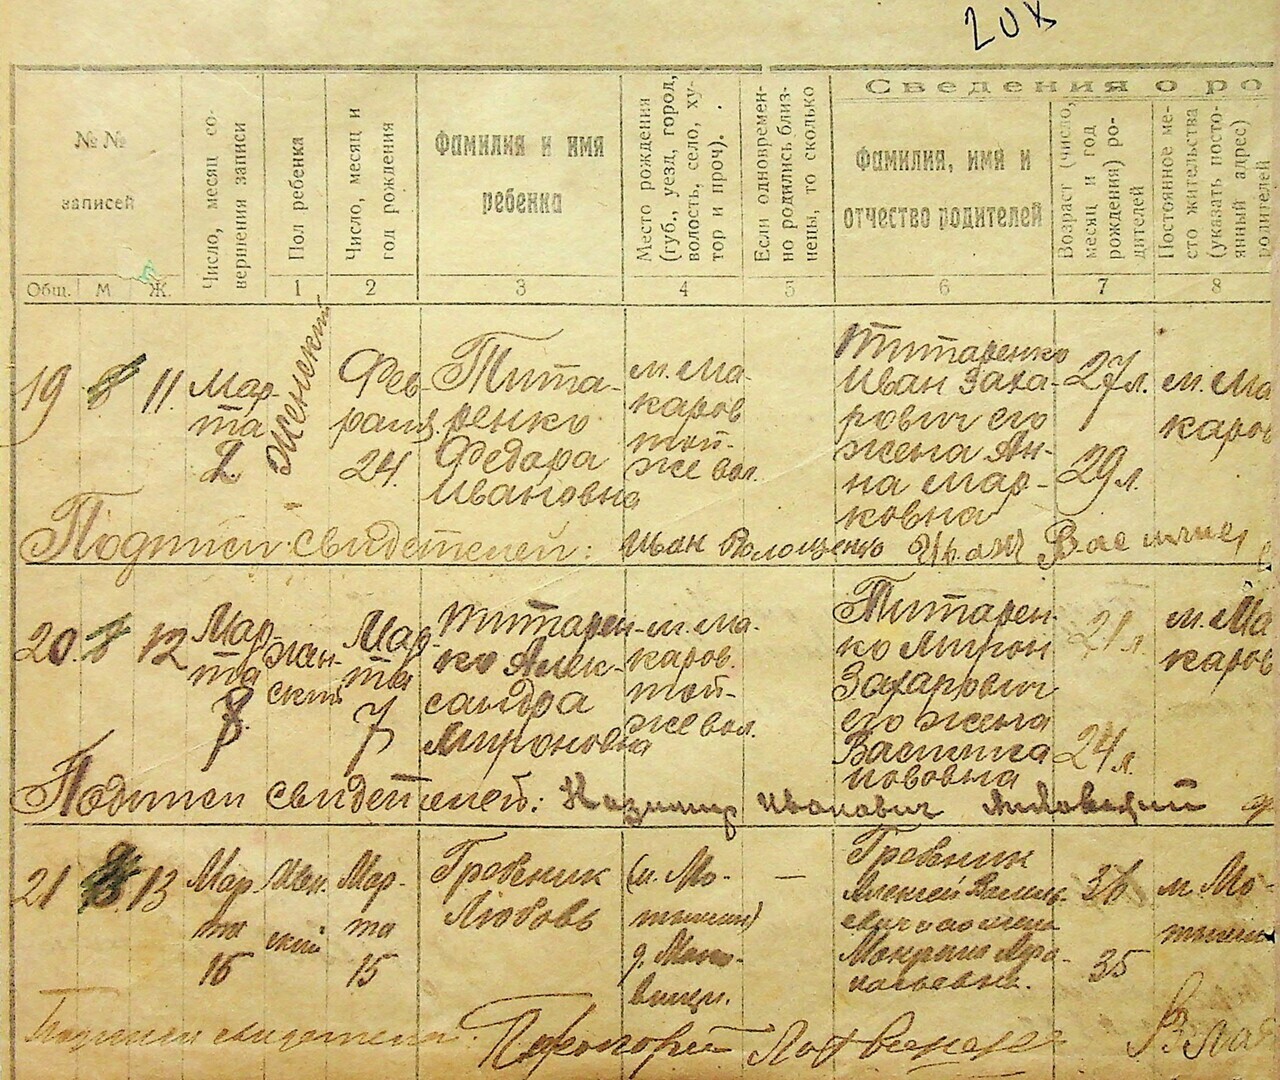 20к
Сведения о ро
№№
записей
Число, месяц со-
вершения записи
Пол ребенка
Число, месяц и
год рождения
Фамилия и имя
ребенка
Место рождения
(губ., уезд, город,
волость, село, ху-
тор и проч).
Если одновремен-
но родились близ-
нецы, то сколько
Фамилия, имя и
отчество родителей
Возраст (число,
месяц и год
рождения) ро-
дителей
Постоянное ме-
сто жительства
(указать посто-
янный адрес)
родителей
Общ. М Ж. 1 2 3 4 5 6 7 8
19 11.
Мар-
та
2
Женский
Фев
раля
24.
Тита-
ренко
Федора
Ивановна
м. Ма-
каров
той-
же вол.
Титаренко
Иван Заха-
рович его
жена Ан-
на Мар-
ковна
27 л.
29 л.
м. Ма
каров
Подписи свидетелей: Иван
20. 12
Мар-
та
8
жен-
ский
Мар-
та
7
Титарен-
ко Алек-
сандра
Мироновна
м. Ма-
каров.
той-
же вол.
Титарен-
ко Мирон
Захарович
его жена
Василиса
24 л.
21 л.
м. Ма
каров
Подписи свидетелей: Казимир Иванович
21 13
Мар-
та
16
Жен.
ский
Мар-
та
15
Гребник
Любовь
(м. Мо-
тыжин)
—
Гребник
Алексей Василь-
евич
36
35
м. Мо-
тыжин
Подписи свидетелей: